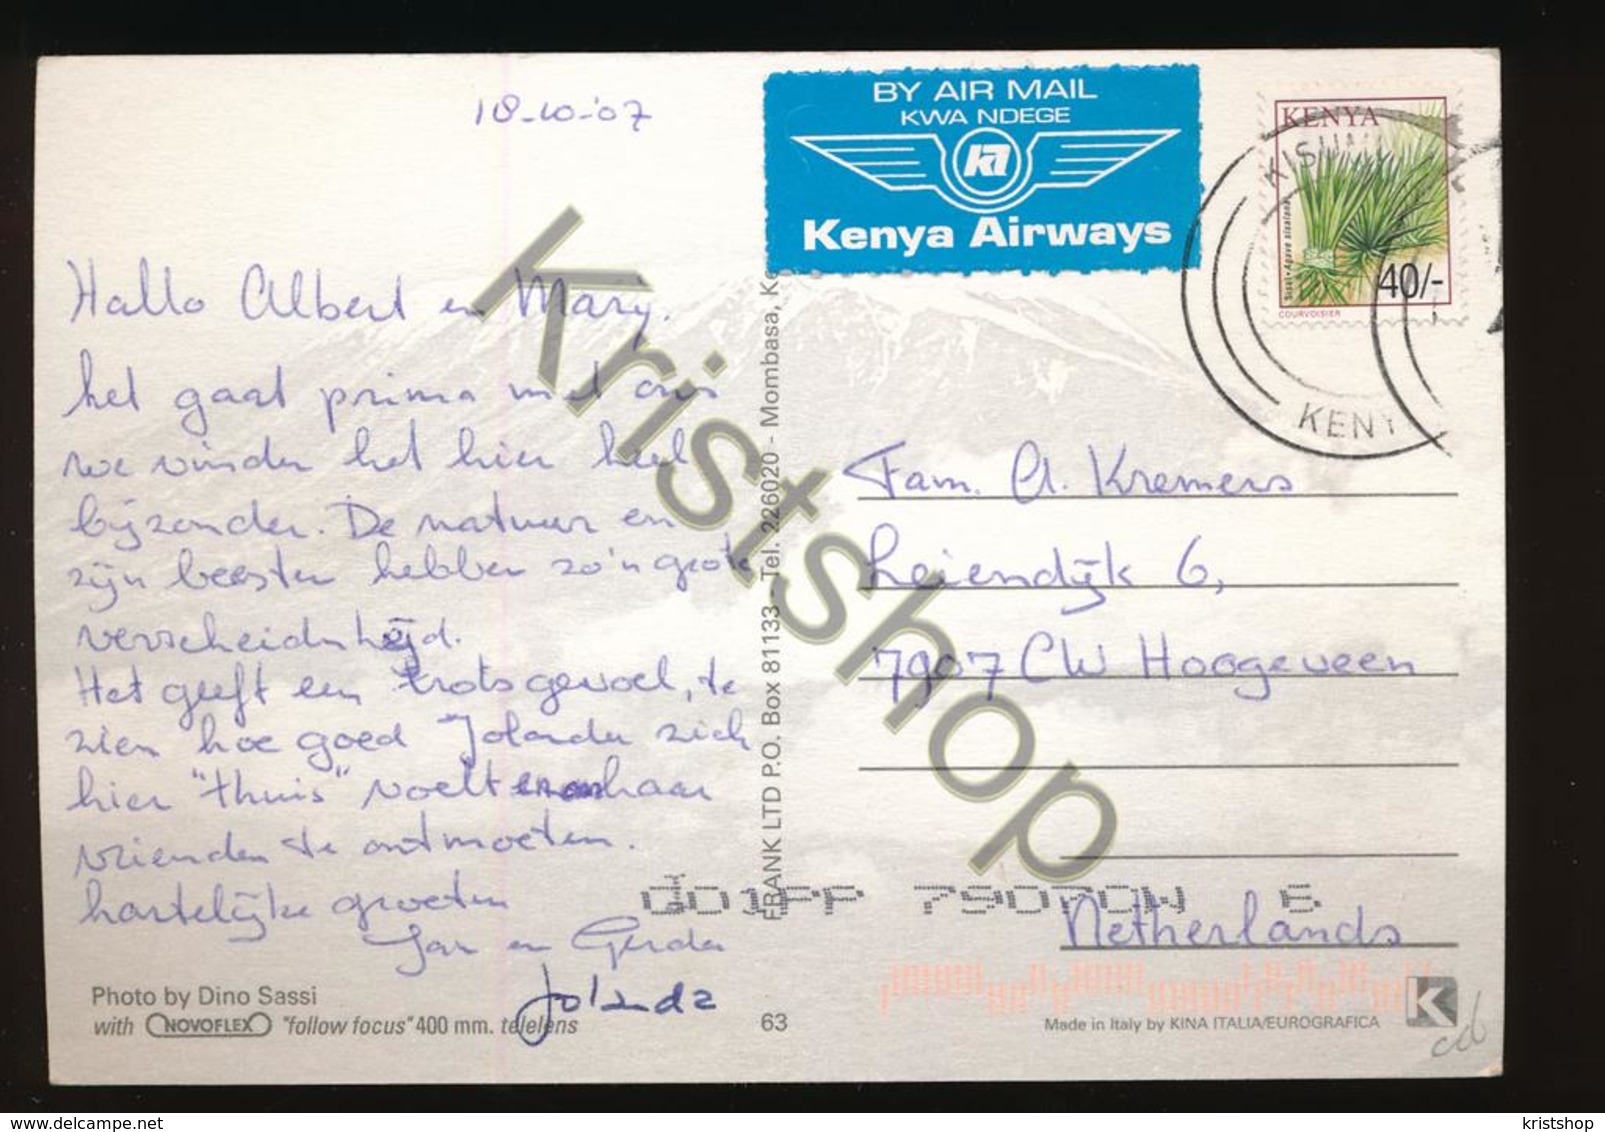 18-10-'07
BY AIR MAIL
KWA NDEGE
Kenya Airways
KENYA
KISUMU
Sisal-Agave sisalana
40/-
COURVOISIER
KENY
Hallo Albert en Marij.
het gaat prima met ons
we vinden het hier heel
bijzonder. De natuur en
zijn beesten hebben zo'n grote
verscheidenheid.
Het geeft een trots gevoel, te
zien hoe goed Jolanda zich
hier "thuis" voelt en om haar
vrienden te ontmoeten.
hartelijke groeten
Jan en Gerda
Jolanda
Photo by Dino Sassi
with NOVOFLEX "follow focus" 400 mm. telelens
FRANK LTD P.O. Box 81133 - Tel. 226020 - Mombasa, Ke
63
Fam. A. Kremers
Leiendijk 6,
7907 CW Hoogeveen
7907CW 6
Netherlands
Made in Italy by KINA ITALIA/EUROGRAFICA
K
cd
Kristshop
delcampe.net
kristshop